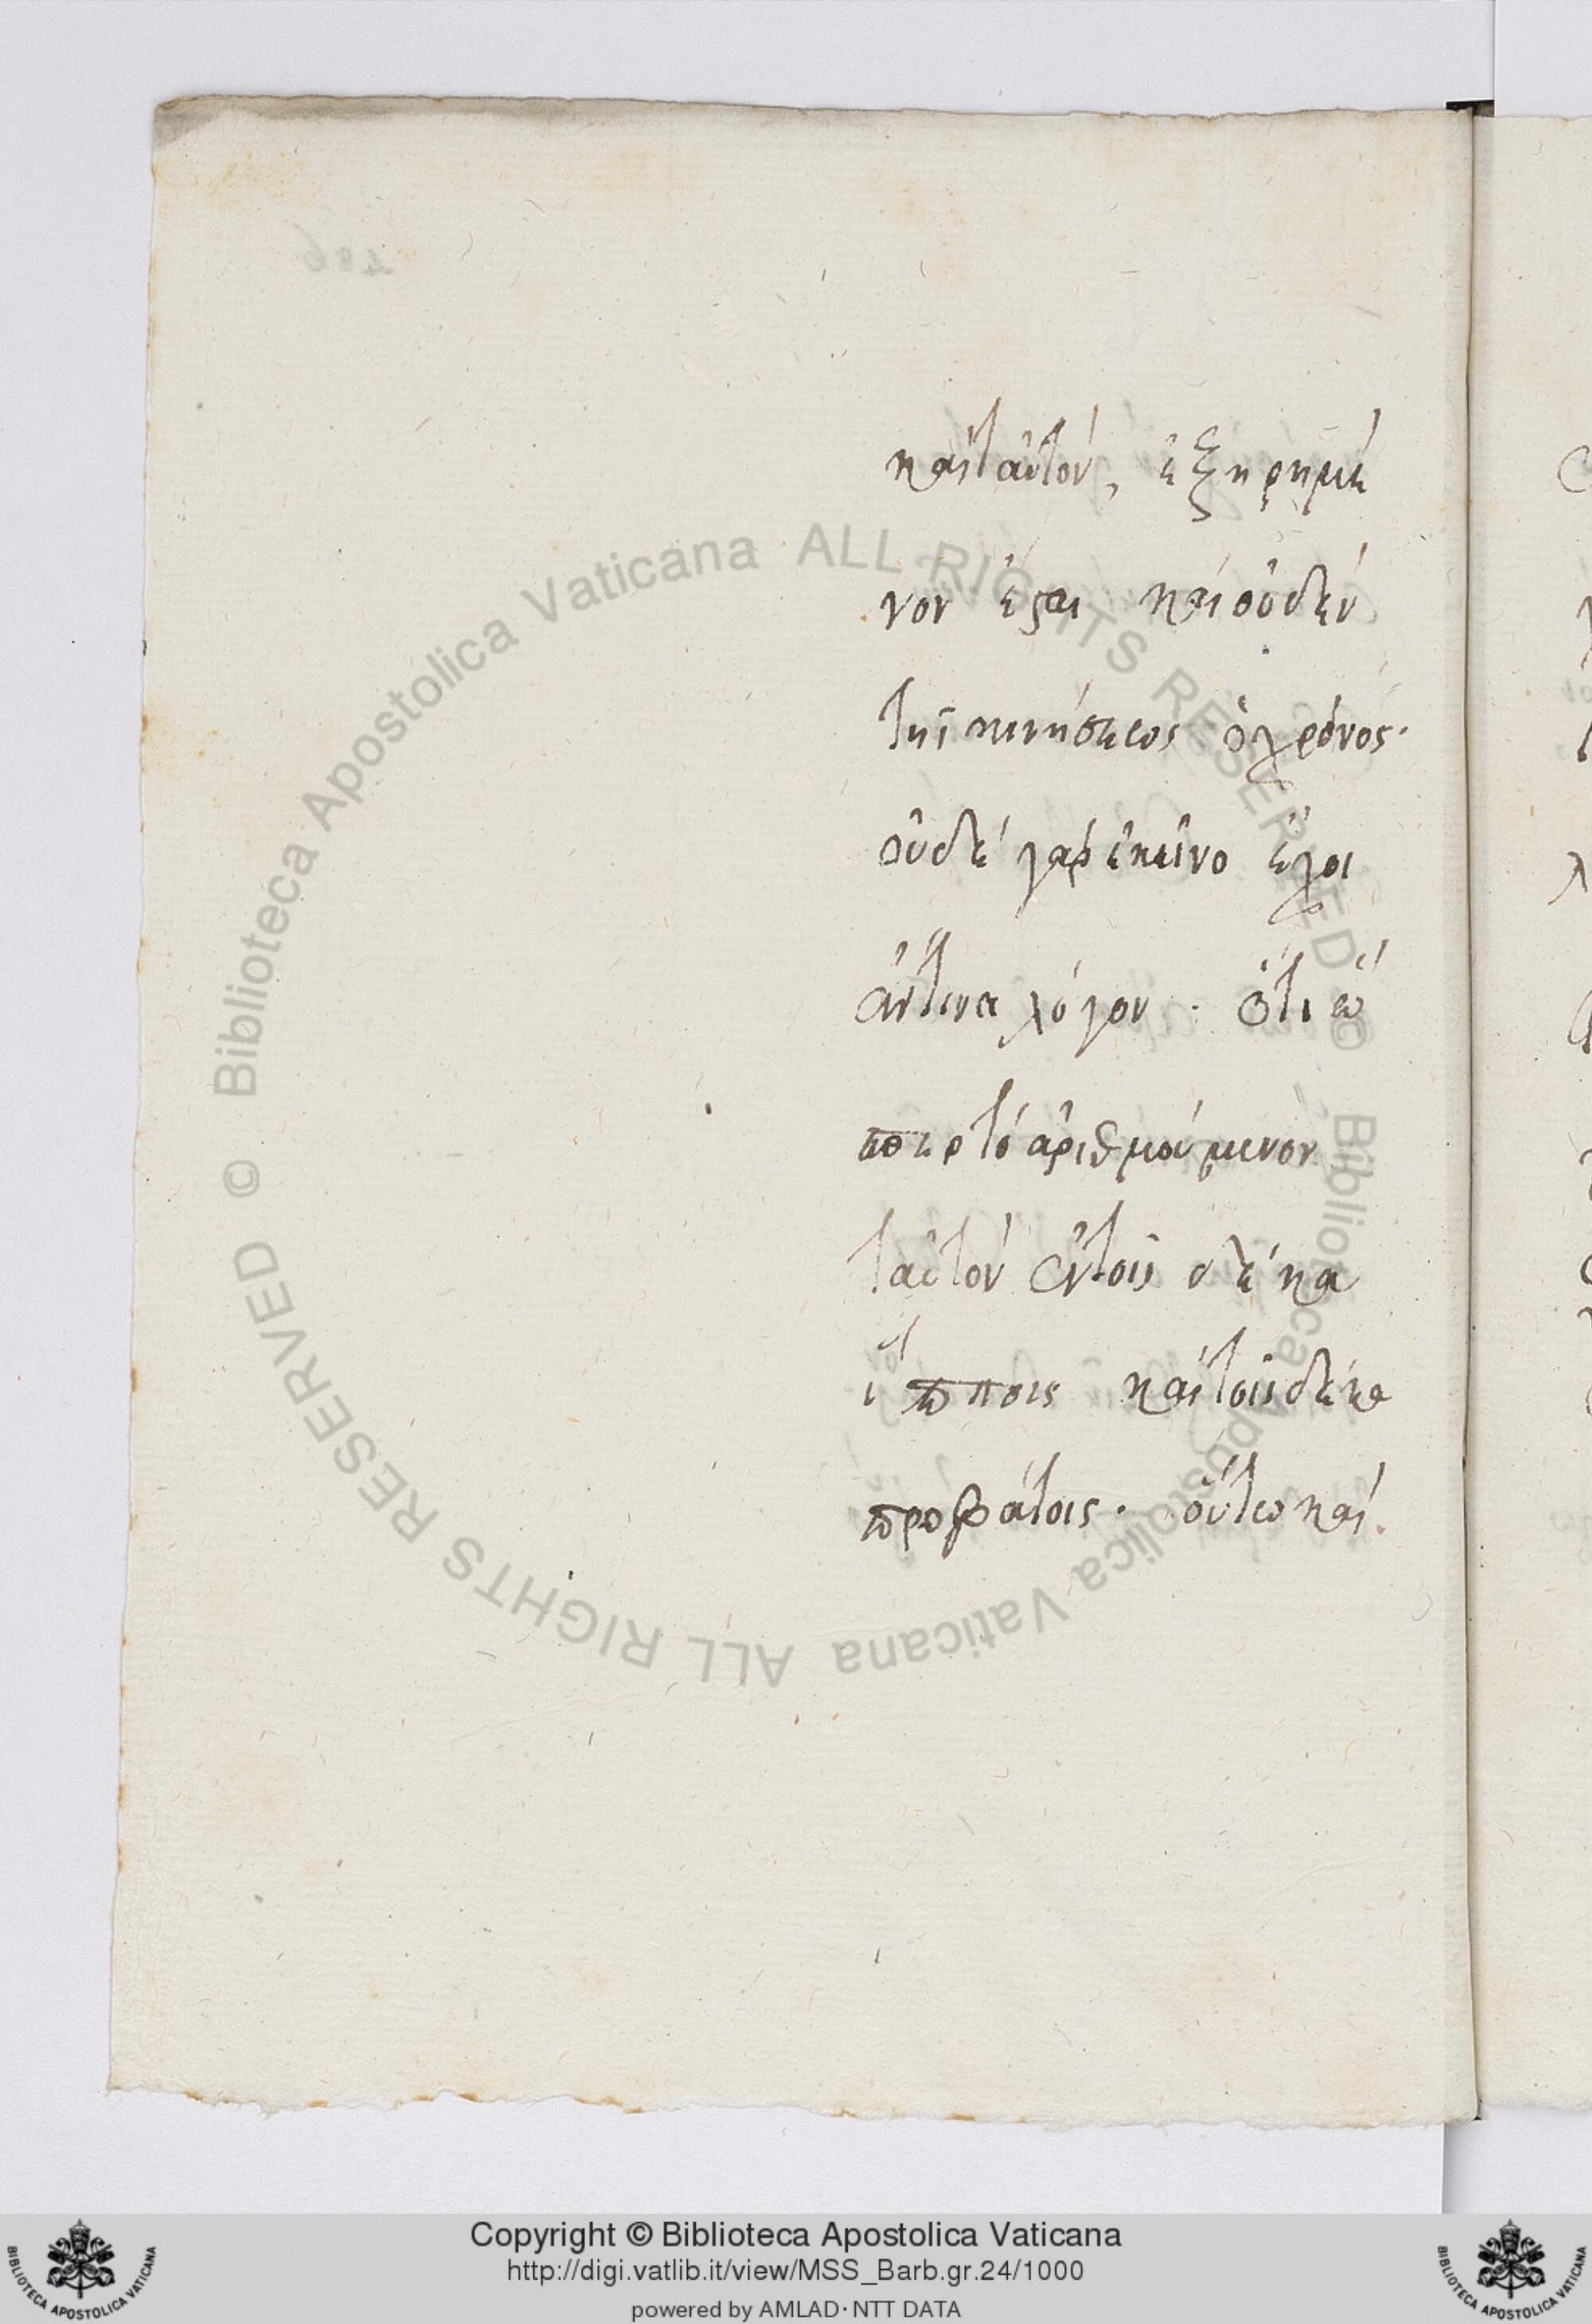 καὶ ταὐτὸν, ἐξηρημέ
νον ἔσται καὶ οὐδὲν
τῆς κινήσεως ὁ χρόνος·
οὐδὲ γὰρ ἐκεῖνο ἔχοι
ἄν τινα λόγον · ὅτι ὥ
σπερ τὸ ἀριθμούμενον
ταὐτὸν ἐν τοῖς δέκα
ἵπποις καὶ τοῖς δέκα
προβάτοις · οὕτω καὶ
Copyright © Biblioteca Apostolica Vaticana
http://digi.vatlib.it/view/MSS_Barb.gr.24/1000
powered by AMLAD · NTT DATA
BIBLIOTECA APOSTOLICA VATICANA
BIBLIOTECA APOSTOLICA VATICANA
© Biblioteca Apostolica Vaticana ALL RIGHTS RESERVED
© Biblioteca Apostolica Vaticana ALL RIGHTS RESERVED